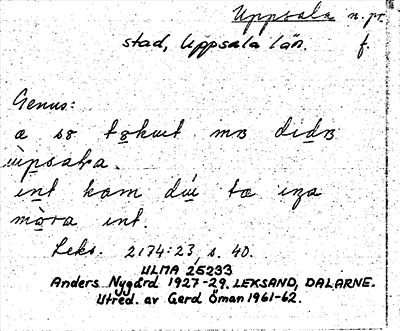 Uppsala n. pr.
stad, Uppsala län. f.
Genus:
æ so tokut mɞ didɞ
ùpsaɫa.
int kom dú tæ iza
mòra int.
Leks. 2174:23, s. 40.
ULMA 25233
Anders Nygård 1927-29. LEKSAND, DALARNE.
Utred. av Gerd Öman 1961-62.